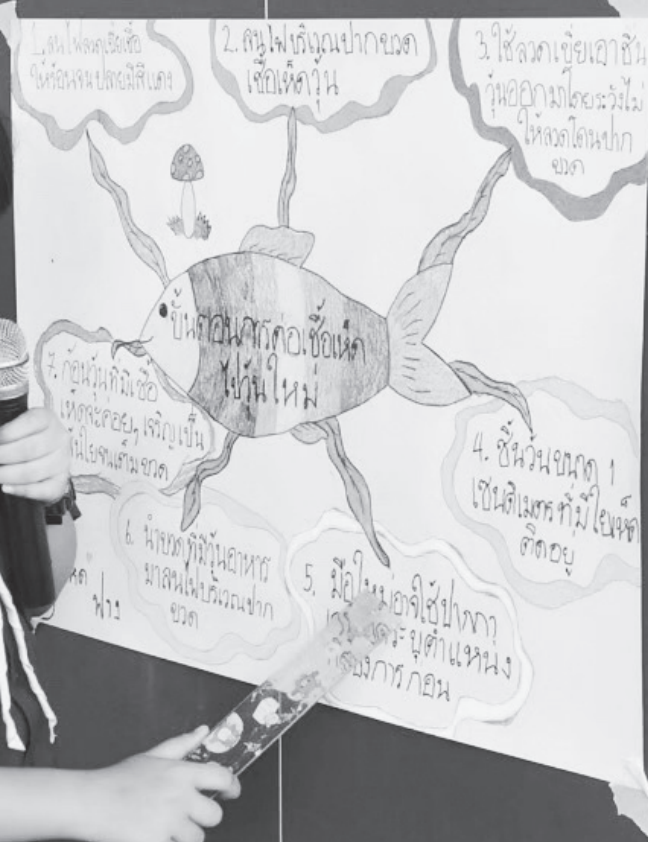 1. ลนไฟลวดเขี่ยเชื้อ
ให้ร้อนจนปลายมีสีแดง
2. ลนไฟบริเวณปากขวด
เชื้อเห็ดวุ้น
3. ใช้ลวดเขี่ยเอาชิ้น
วุ้นออกมาโดยระวังไม่
ให้ลวดโดนปาก
ขวด
ขั้นตอนการต่อเชื้อเห็ด
ไปวุ้นใหม่
4. ชิ้นวุ้นขนาด 1
เซนติเมตรที่มีใยเห็ด
ติดอยู่
5. มือใหม่อาจใช้ปากกา
ระบุตำแหน่ง
ต้องการก่อน
6. นำขวดที่มีวุ้นอาหาร
มาลนไฟบริเวณปาก
ขวด
7. ก้อนวุ้นที่มีเชื้อ
เห็ดจะค่อยๆ เจริญเป็น
เส้นใยจนเต็มขวด
ฟาง